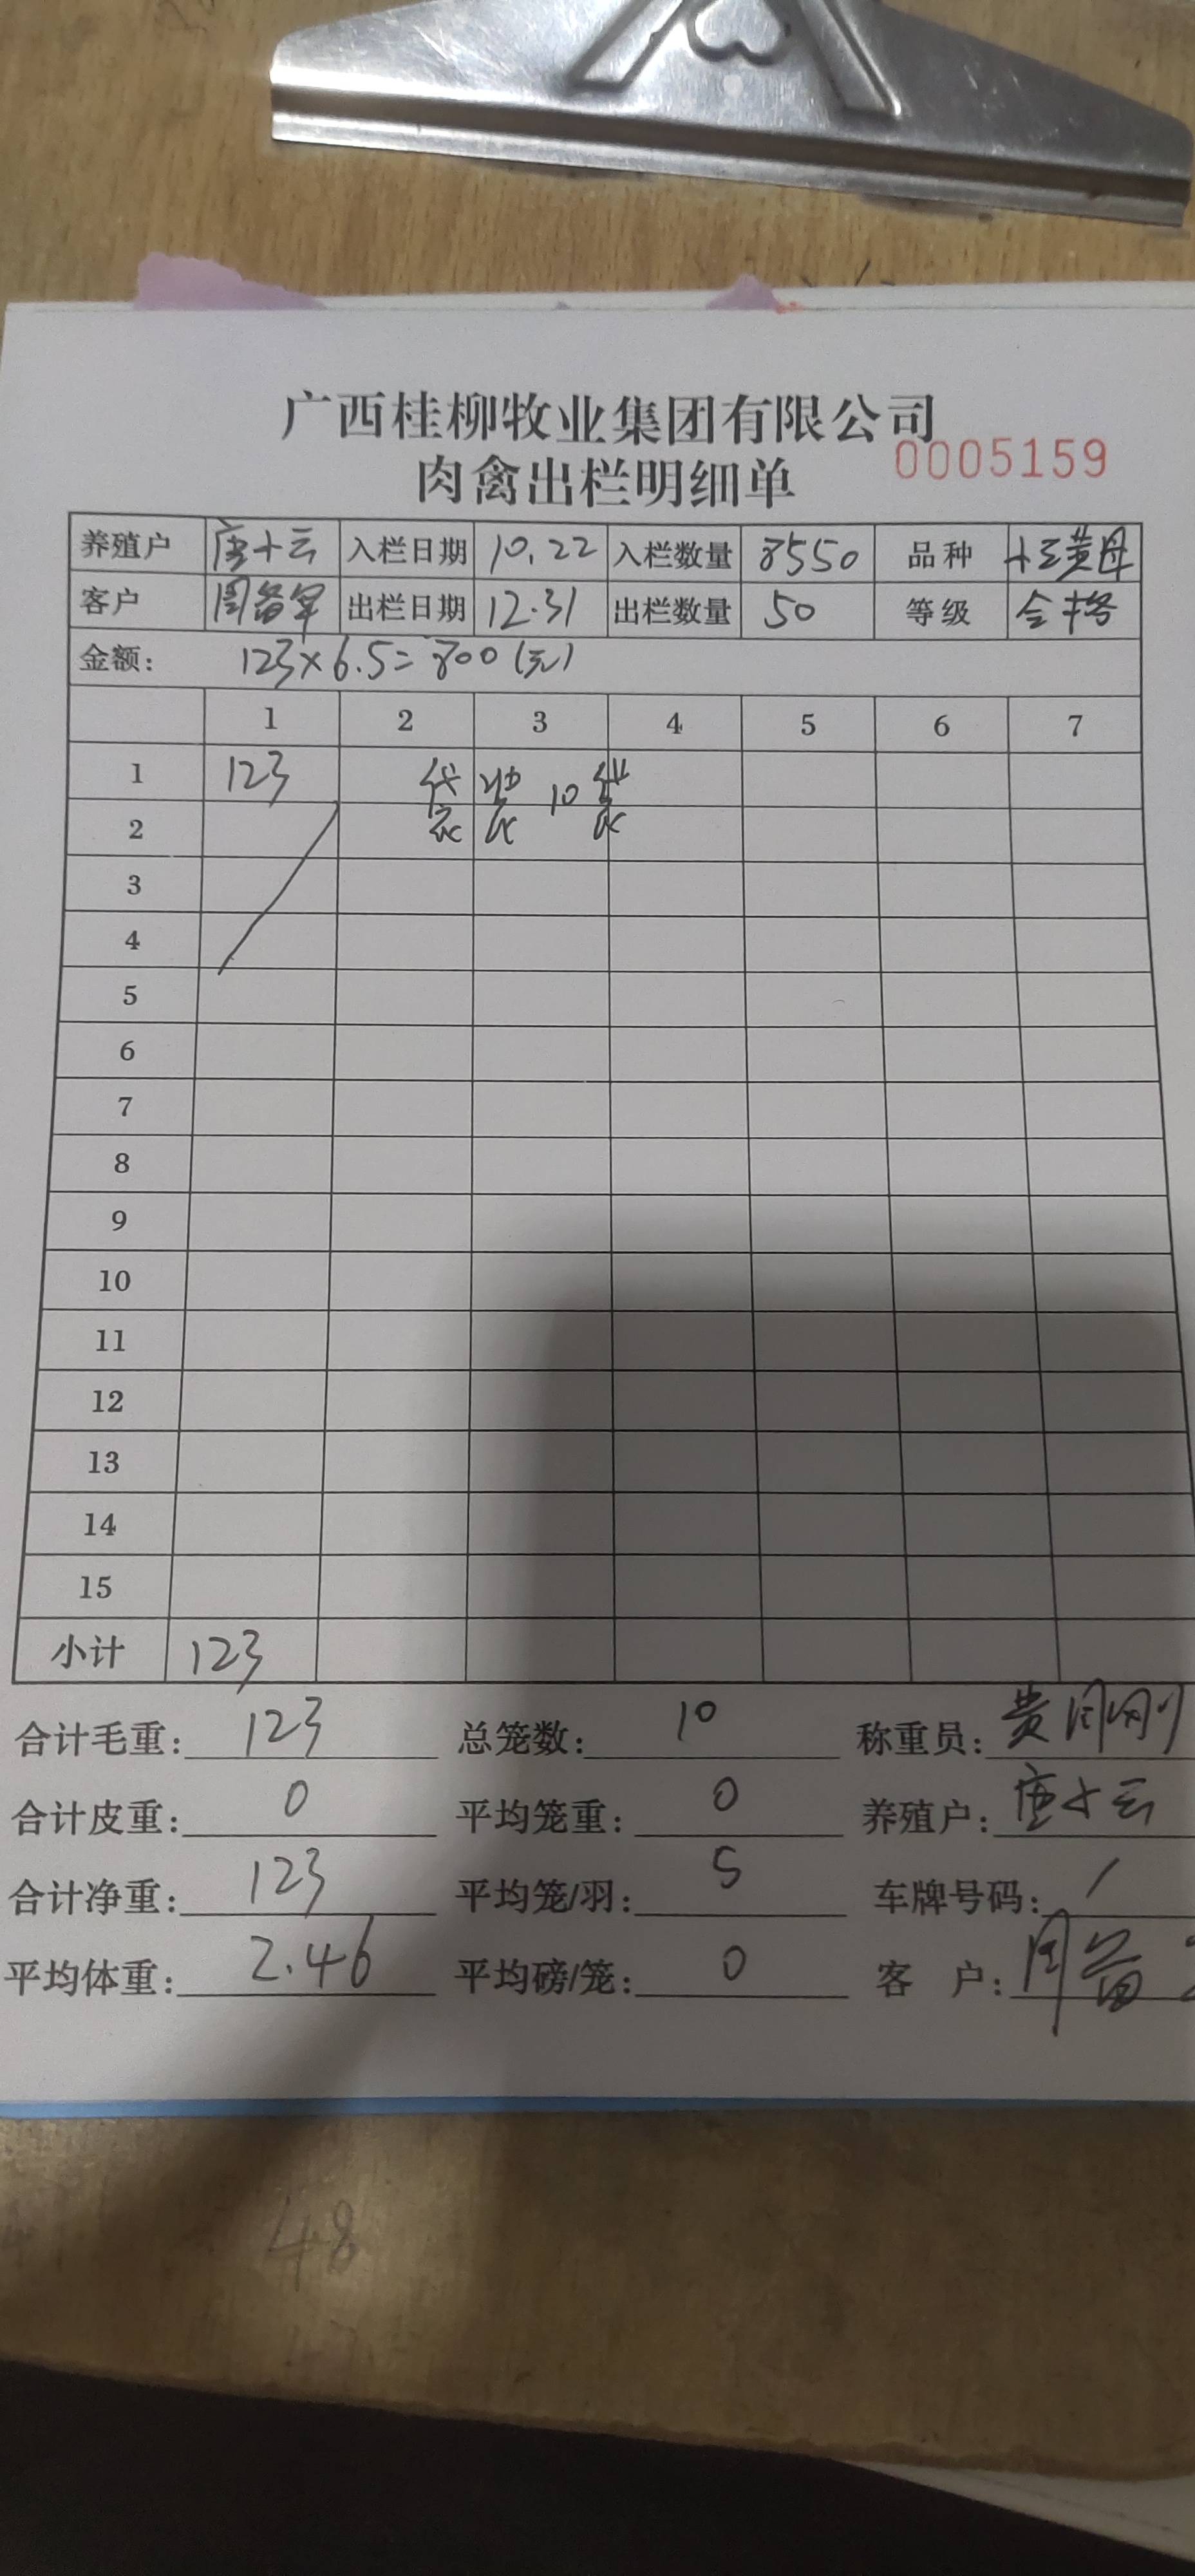 广西桂柳牧业集团有限公司
肉禽出栏明细单 0005159
养殖户 唐十云 入栏日期 10.22 入栏数量 8550 品种
客户 出栏日期 12.31 出栏数量 50 等级 合格
金额: 123×6.5=800(元)
1 2 3 4 5 6 7
1 123 袋 10 袋
2
3
4
5
6
7
8
9
10
11
12
13
14
15
小计 123
合计毛重: 123 总笼数: 10 称重员:
合计皮重: 0 平均笼重: 0 养殖户: 唐十云
合计净重: 123 平均笼/羽: 5 车牌号码: /
平均体重: 2.46 平均磅/笼: 0 客 户: 周
48